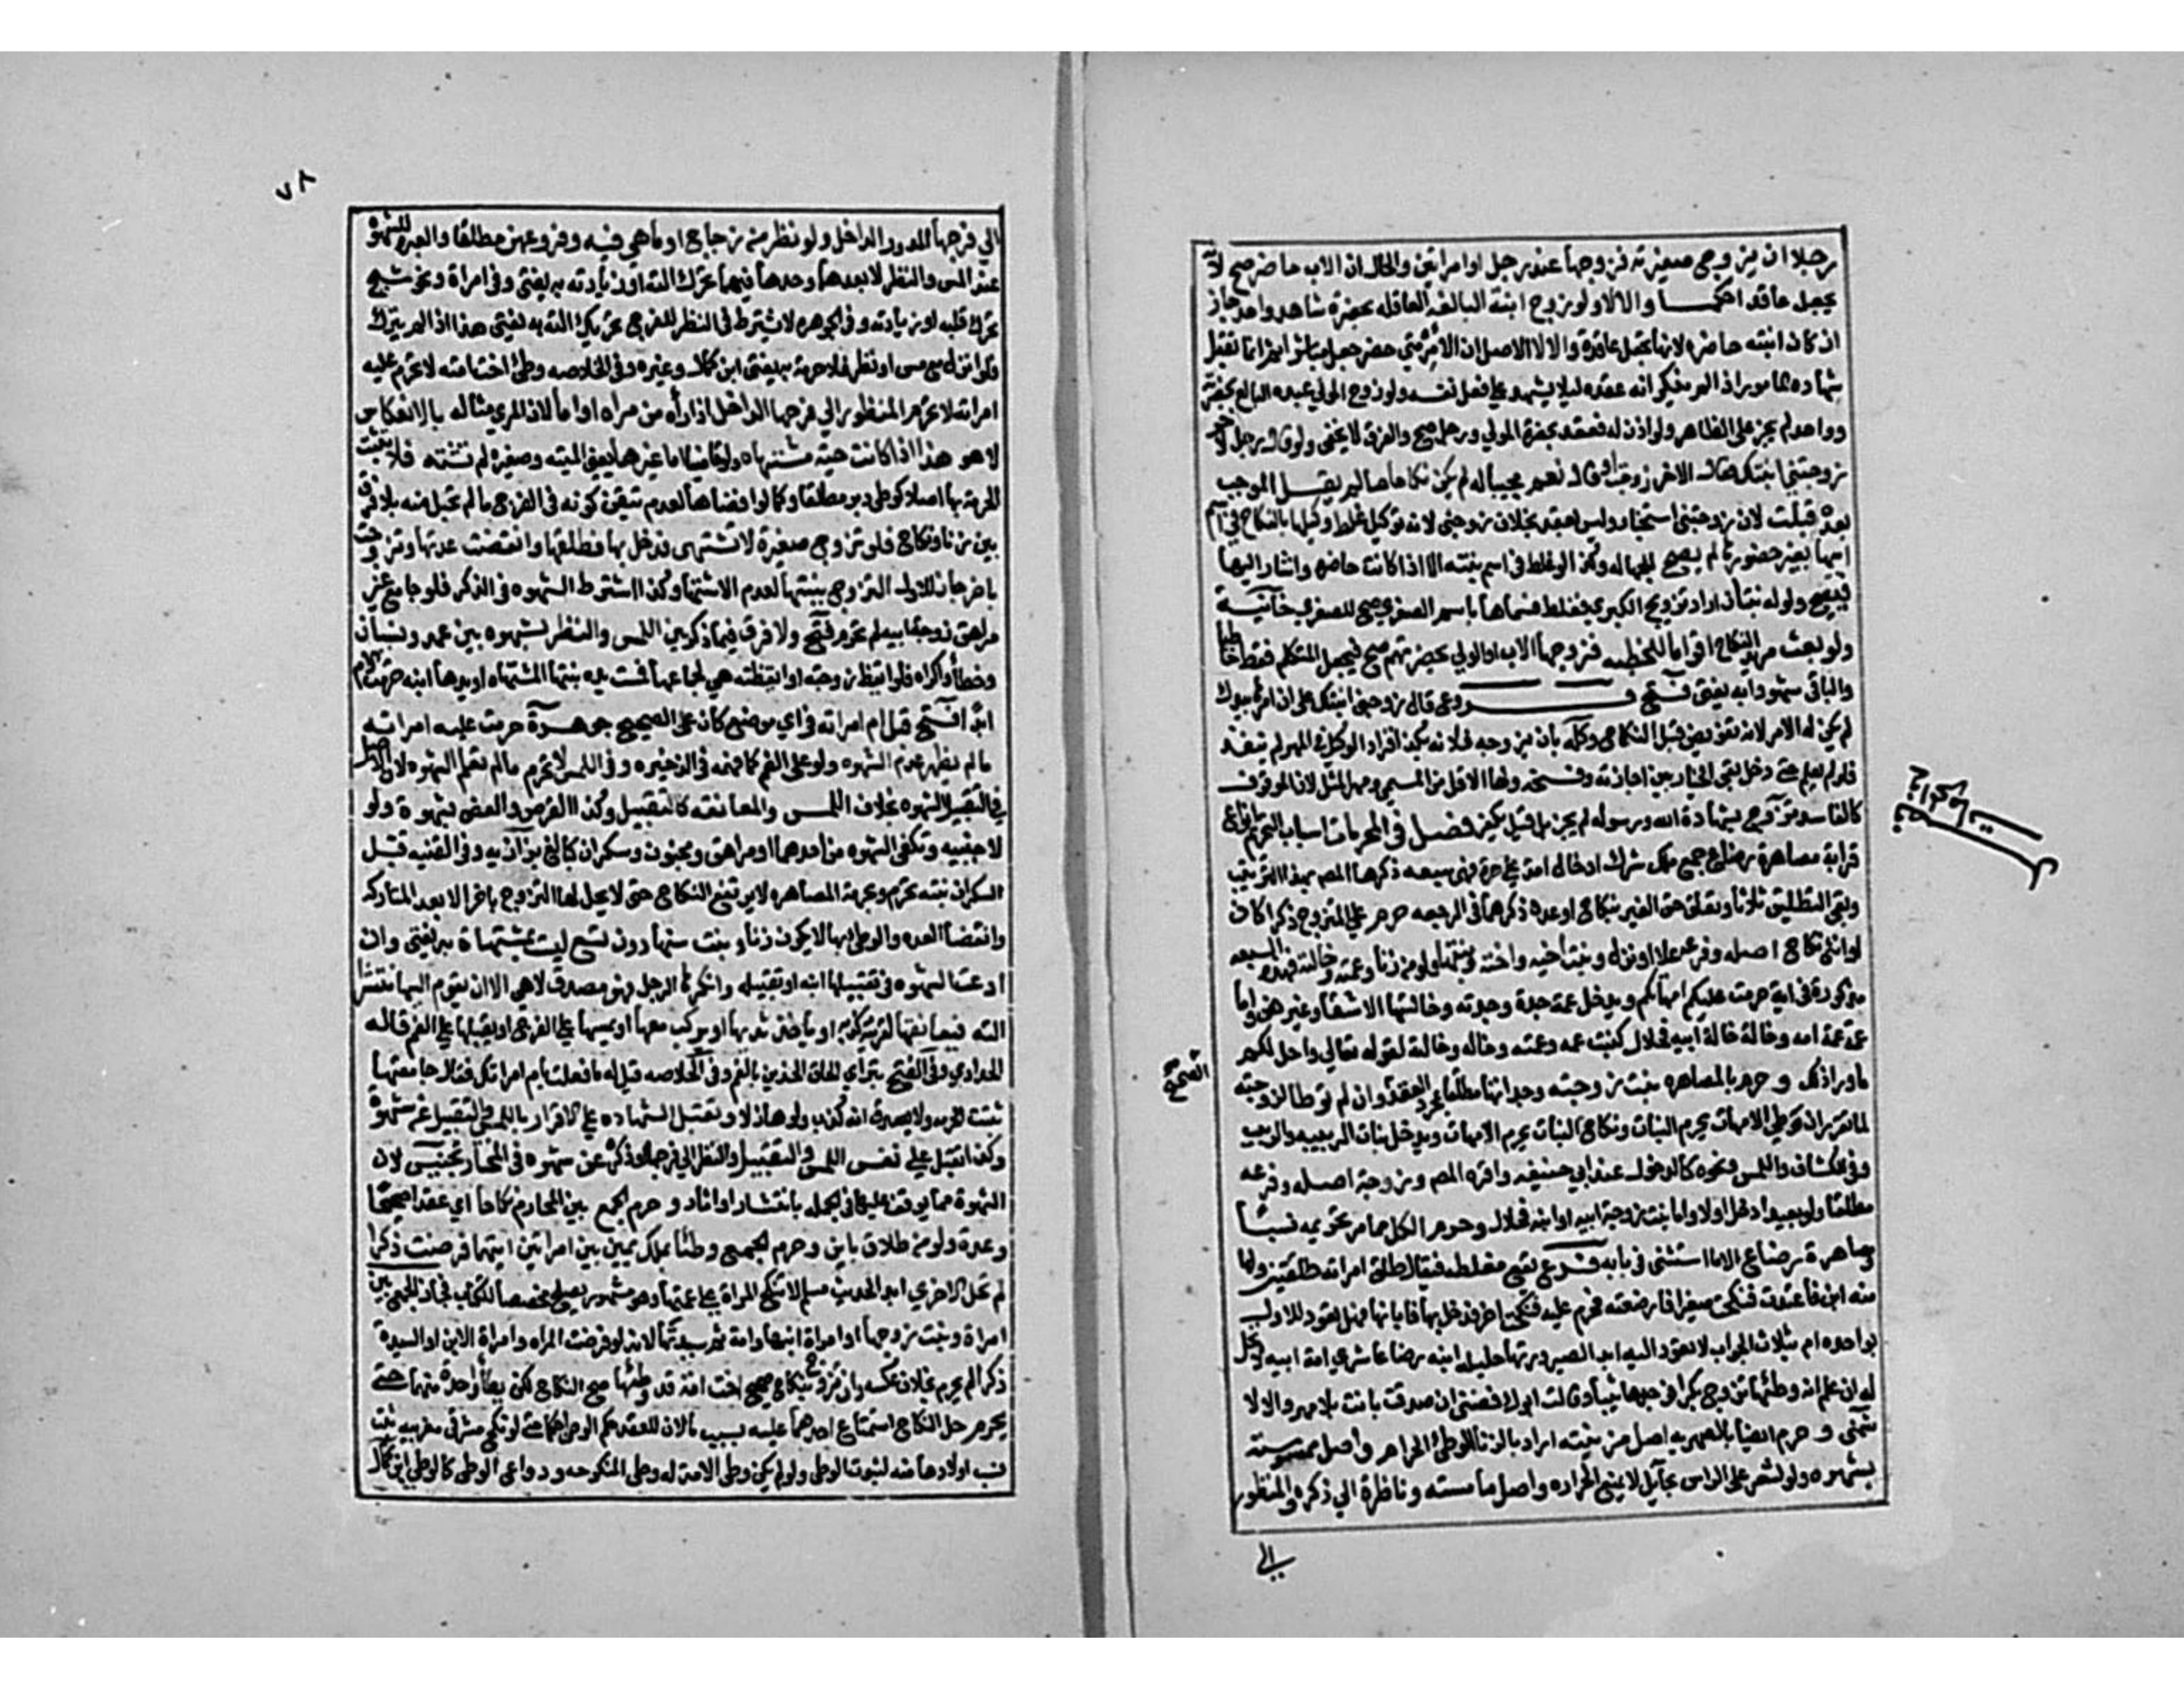 رجلا ان يزوج صغيرته فزوجها عند رجل او امراتين والحال ان الاب حاضر صح لانه
يجعل عاقدا حكما والا لا ولو زوج ابنته البالغة العاقله بمحضرة شاهد واحد جاز
ان كان ابنته حاضره لانها تجعل عاقدة والا لا الاصل ان الآمر متى حضر جعل مباشرا ثم انما تقبل
شهادة المامور اذا لم يذكر انه عقده ليلا يشهد على فعل نفسه ولو زوج المولي عبده البالغ بحضرته
وواحد لم يجز على الظاهر ولو اذن له فعقد بحضرة المولي ورجل صح والفرق لا يخفى ولو قال رجل لاخر
زوجتني ابنتك فقال الاخر زوجت او قال نعم مجيبا له لم يكن نكاحا ما لم يقل الموجب
بعده قبلت لان زوجتني استخبار وليس بعقد بخلاف زوجني لانه توكيل غلط وكيلها بالنكاح في اسم
ابيها بغير حضورها لم يصح للجهاله وكذا لو غلط في اسم بنته الا اذا كانت حاضره واشار اليها
فيصح ولو له بنتان اراد تزويج الكبري فغلط فسماها باسم الصغري صح للصغري خانية
ولو بعث مريد النكاح اقواما للخطبه فزوجها الاب او الولي بحضرتهم صح فيجعل المتكلم فقط خاطبا
والباقي شهودا به يفتى فتح فروع قال زوجني ابنتك على ان امرها بيدك
لم يكن له الامر لانه تفويض قبل النكاح وكله بان يزوجه فلانه بكذا فزاد الوكيل في المهر لم ينفذ
فلو لم يعلم حتى دخل بقي الخيار بين اجازته وفسخه ولها الاقل من المسمي ومهر المثل لان الموقوف
كالفاسد تزوج بشهادة الله ورسوله لم يجز بل قيل يكفر فصل في المحرمات اسباب التحريم انواع
قرابة مصاهرة رضاع جمع ملك شرك ادخال امة على حرة فهي سبعه ذكرها المص بهذا الترتيب
وبقي التطليق ثلاثا وتعلق حق الغير بنكاح او عدة ذكرهما في الرجعه حرم على المتزوج ذكرا كان
او انثى نكاح اصله وفرعه علا او نزل وبنت اخيه واخته وبنتها ولو من زنا وعمته وخالته فهذه السبعه
مذكورة في اية حرمت عليكم امهاتكم ويدخل عمة جده وجدته وخالتهما الاشقا وغيرهن واما
عمة عمة امه وخالة خالة ابيه فحلال كبنت عمه وعمته وخاله وخالته لقوله تعالي واحل لكم
ما ورا ذلكم وحرم بالمصاهره بنت زوجته وجداتها مطلقا بمجرد العقد وان لم توطا الزوجه
لما تقرر ان وطي الامهات يحرم البنات ونكاح البنات يحرم الامهات ويدخل بنات الربيبه والربيب
وفي الكشاف واللمس ونحوه كالدخول عند ابي حنيفه واقره المص وزوجة اصله وفرعه
مطلقا ولو بعيدا دخل اولا واما بنت زوجة ابيه او ابنه فحلال وحرم الكل مما مر تحريمه نسبا
ومصاهرة رضاع الا ما استثنى في بابه فرع يقع مغلطه فيقال طلق امراته طلقتين ولها
منه ابن فاعتدت فنكحت صغيرا فارضعته فحرم عليه فنكحت اخر فدخل بها فابانها فهل تعود للاول
بواحده ام بثلاث الجواب لا تعود اليه ابدا لصيرورتها حليلة ابنه رضاعا شري امة ابيه لم تحل
له ان علم انه وطئها تزوج بكرا فوجدها ثيبا وقالت ابوك فضني ان صدقت بانت بلا مهر والا لا
شمني وحرم ايضا بالصهريه اصل مزنيته اراد بالزنا الوطئ الحرام واصل ممسوسته
بشهوه ولو لشعر على الراس بحايل لا يمنع الحراره واصل ماسته وناظرة الي ذكره والمنظور
الي
الصحيح
٧٨
الي فرجها المدور الداخل ولو نظره من زجاج او ماء هي فيه وفروعهن مطلقا والعبرة للشهوة
عند المس والنظر لا بعدهما وحدها فيهما تحرك الته او زيادته به يفتى وفي امراة ونحو شيخ
تحرك قلبه او زيادته وفي الجوهره لا يشترط في النظر للفرج تحريك الته به يفتى هذا اذا لم ينزل
فلو انزل مع مس او نظر فلا حرمة به يفتى ابن كمال وغيره وفي الخلاصه وطئ اخت امته لا تحرم عليه
امراته لا تحرم المنظور الي فرجها الداخل اذا راه من مراه او ماء لان المري مثاله بالانعكاس
لا هو هذا اذا كانت حية مشتهاه ولو ماضيا اما غيرها يعني الميته وصغيره لم تشته فلا تثبت
الحرمة بها اصلا كوطي دبر مطلقا وكما لو افضاها لعدم تيقن كونه في الفرج ما لم تحبل منه بلا فرق
بين زنا ونكاح فلو تزوج صغيرة لا تشتهى فدخل بها فطلقها وانقضت عدتها وتزوجت
باخر جاز للاول التزوج ببنتها لعدم الاشتهاء وكذا اشترط الشهوه في الذكر فلو جامع غير
مراهق زوجة ابيه لم تحرم فتح ولا فرق فيما ذكر بين اللمس والنظر بشهوه بين عمد ونسيان
وخطأ واكراه فلو ايقظ زوجته او ايقظته هي لجماعها فمست يده بنتها المشتهاه او يدها ابنه حرمت الام
ابدا فتح قبل ام امراته في اي موضع كان على الصحيح جوهرة حرمت عليه امراته
ما لم يظهر عدم الشهوه ولو على الفم كما فهمه في الذخيره وفي اللمس لا تحرم ما لم تعلم الشهوه لان الاصل
في التقبيل الشهوه بخلاف اللمس والمعانقه كالتقبيل وكذا القرص والعض بشهوة ولو
لاجنبيه وتكفي الشهوه من احدهما ومراهق ومجنون وسكران كبالغ بزازيه وفي القنيه قبل
السكران بنته تحرم وبحرمة المصاهره لا يرتفع النكاح حتى لا يحل لها التزوج باخر الا بعد المتاركه
وانقضا العده والوطي بها لا يكون زنا وبنت سنها دون تسع ليست بمشتهاة به يفتى وان
ادعت الشهوه في تقبيله او تقبيلها ابنه وانكرها الرجل فهو مصدق لا هي الا ان يقوم اليها منتشرا
الته فيعانقها لقرينة كذبه او ياخذ ثديها او يركب معها او يمسها على الفرج او يقبلها على الفم قاله
الحدادي وفي الفتح يتراءي الحاق الخدين بالفم وفي الخلاصه قيل له ما فعلت بام امراتك فقال جامعتها
ثبتت الحرمه ولا يصدق انه كذب ولو هازلا وتقبل الشهاده على الاقرار باللمس والتقبيل عن شهوة
وكذا تقبل على نفس اللمس والتقبيل والنظر الي فرجها وذكره عن شهوه في المختار تجنيس لان
الشهوة مما يوقف عليها في الجمله بانتشار او اثار وحرم الجمع بين المحارم نكاحا اي عقدا صحيحا
وعدة ولو من طلاق باين وحرم الجمع وطئا بملك يمين بين امراتين ايتهما فرضت ذكرا
لم تحل للاخري ابدا لحديث مسلم لا تنكح المراة على عمتها وهو مشهور يصلح مخصصا للكتاب فجاز الجمع بين
امراة وبنت زوجها او امراة ابنها وامة ثم سيدتها لانه لو فرضت المراه وامراة الابن او السيدة
ذكرا لم يحرم بخلاف عكسه وان تزوج بنكاح صحيح اخت امة قد وطئها صح النكاح لكن لا يطأ واحدة منهما حتى
يحرم حل استمتاع احدهما عليه بسبب ما لان للعقد حكم الوطي حتى لو نكح مشرقي مغربيه ثبت
نسب اولادها منه لثبوت الوطي ولو لم يكن وطي الامة له وطي المنكوحه ودواعي الوطي كالوطي ابن كمال